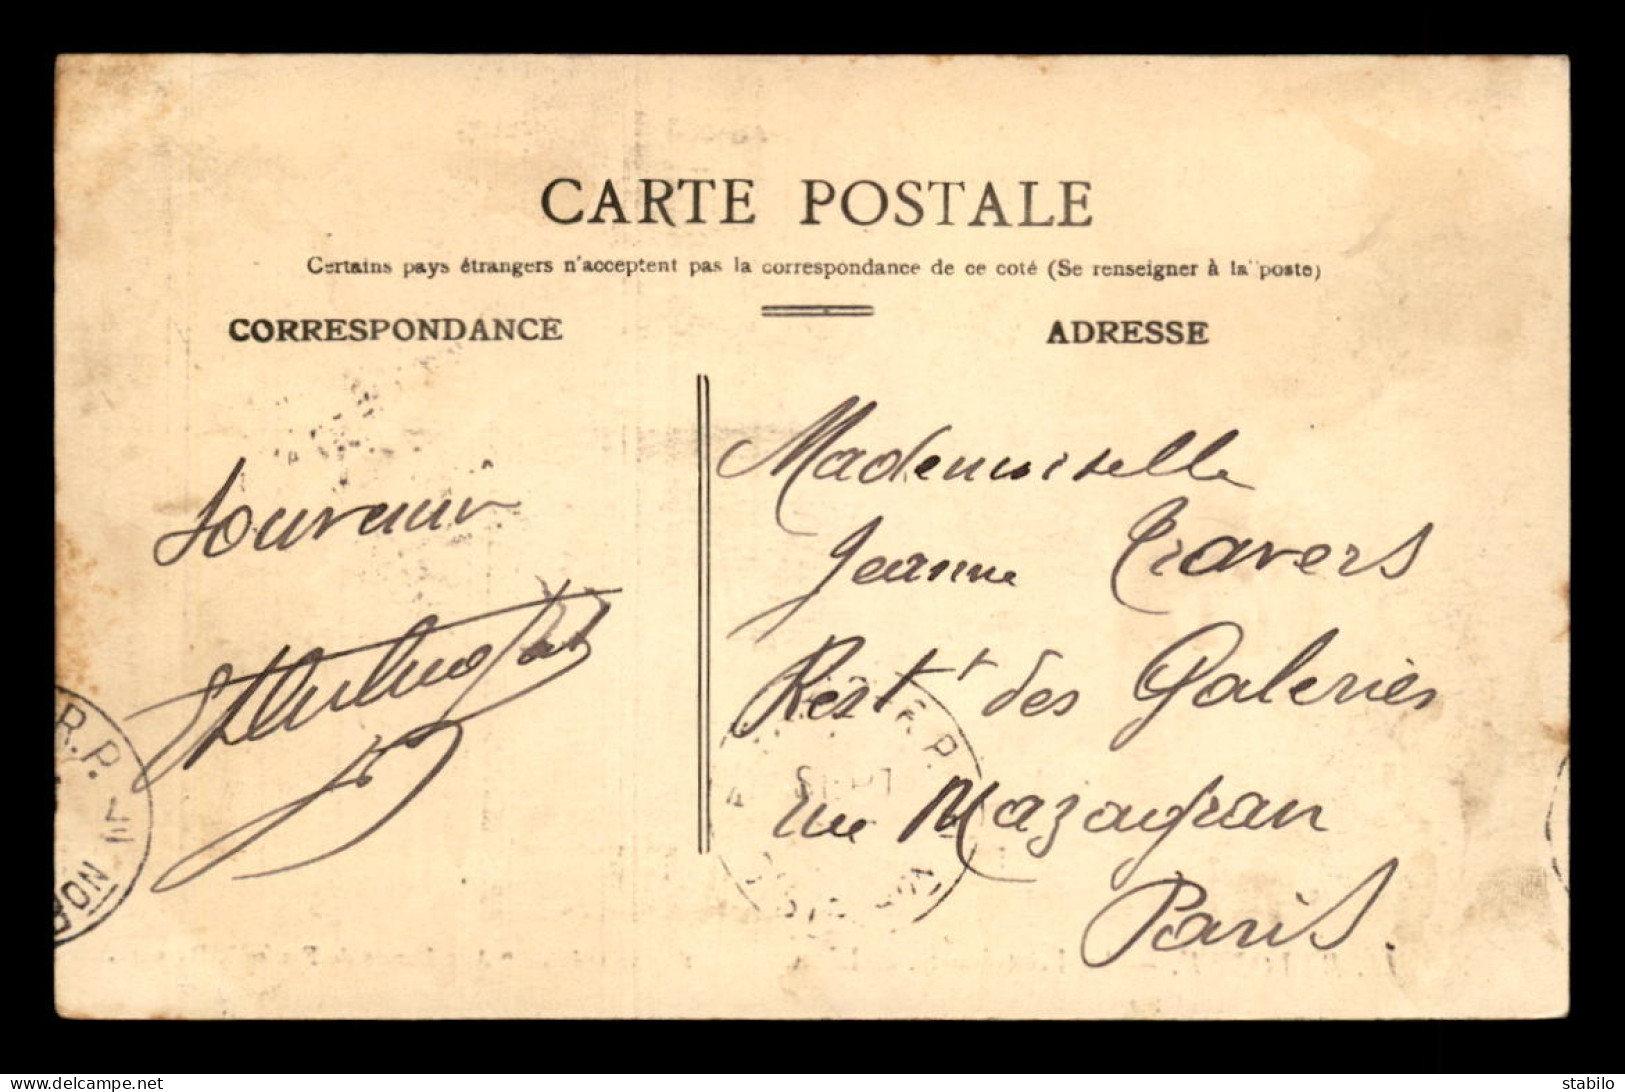 CARTE POSTALE
Certains pays étrangers n'acceptent pas la correspondance de ce coté (Se renseigner à la poste)
CORRESPONDANCE
ADRESSE
Souvenir
Mademoiselle
Jeanne Travers
Rest^t des Galeries
rue Mazagran
Paris.
R.P.
R.P.
delcampe.net
stabilo